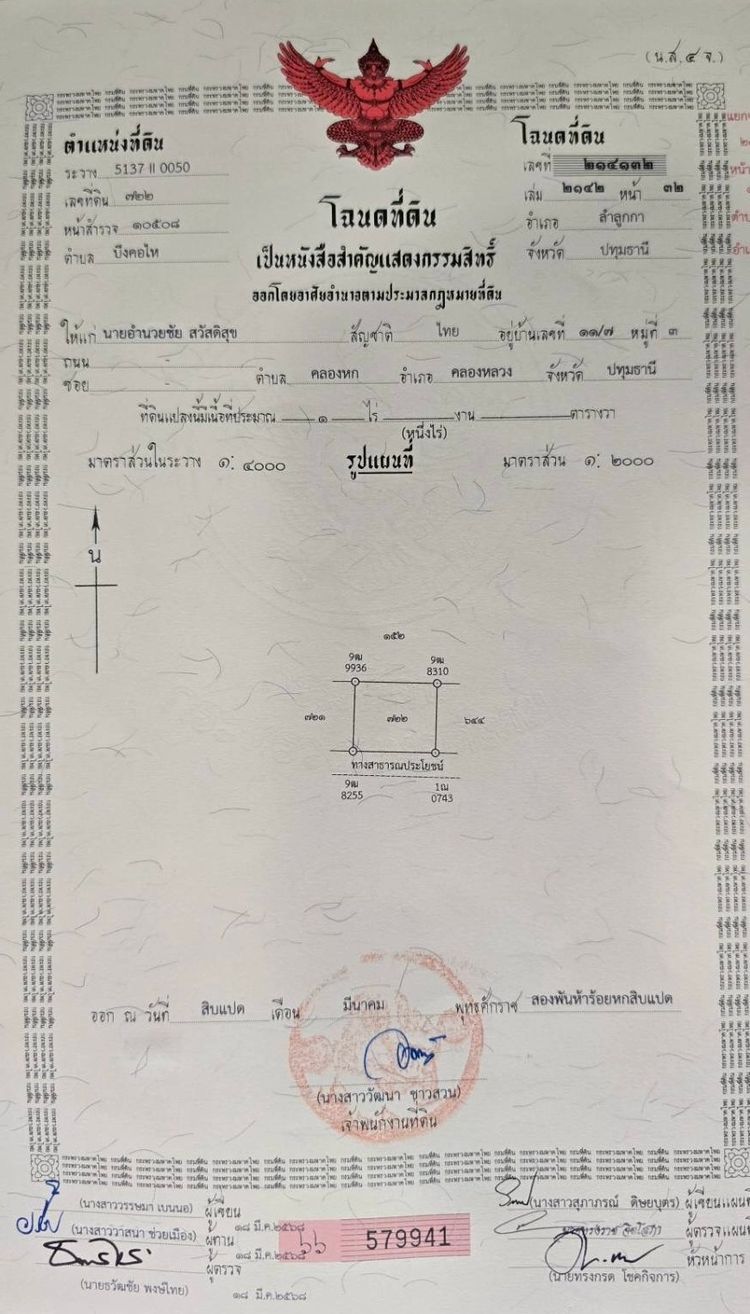 (น.ส.๔ จ.)
ตำแหน่งที่ดิน
ระวาง 5137 II 0050
เลขที่ดิน ๗๒๒
หน้าสำรวจ ๑๐๕๐๘
ตำบล บึงคอไห
โฉนดที่ดิน
เลขที่ ๒๑๔๑๓๒
เล่ม ๒๑๔๒ หน้า ๓๒
อำเภอ ลำลูกกา
จังหวัด ปทุมธานี
โฉนดที่ดิน
เป็นหนังสือสำคัญแสดงกรรมสิทธิ์
ออกโดยอาศัยอำนาจตามประมวลกฎหมายที่ดิน
ให้แก่ นายอำนวยชัย สวัสดิสุข สัญชาติ ไทย อยู่บ้านเลขที่ ๑๑/๗ หมู่ที่ ๓
ถนน -
ซอย - ตำบล คลองหก อำเภอ คลองหลวง จังหวัด ปทุมธานี
ที่ดินแปลงนี้มีเนื้อที่ประมาณ ๑ ไร่ งาน ตารางวา
(หนึ่งไร่)
มาตราส่วนในระวาง ๑: ๔๐๐๐ รูปแผนที่ มาตราส่วน ๑: ๒๐๐๐
น
๑๕๒
9ฒ 9936
9ฒ 8310
๗๒๑ ๗๒๒ ๖๔๔
ทางสาธารณประโยชน์
9ฒ 8255
1ณ 0743
ออก ณ วันที่ สิบแปด เดือน มีนาคม พุทธศักราช สองพันห้าร้อยหกสิบแปด
(นางสาววัฒนา ชาวสวน)
เจ้าพนักงานที่ดิน
(นางสาววรรษมา เบนนอ) ผู้เขียน
๑๘ มี.ค.๒๕๖๘
(นางสาววาสนา ช่วยเมือง) ผู้ทาน
๑๘ มี.ค.๒๕๖๘
ผู้ตรวจ
(นายธวัฒชัย พงษ์ไทย)
๑๘ มี.ค.๒๕๖๘
579941
(นางสาวสุภาภรณ์ ดิษยบุตร) ผู้เขียนแผนที่
ผู้ตรวจแผนที่
หัวหน้าการ
(นายทรงกรด โชคกิจการ)